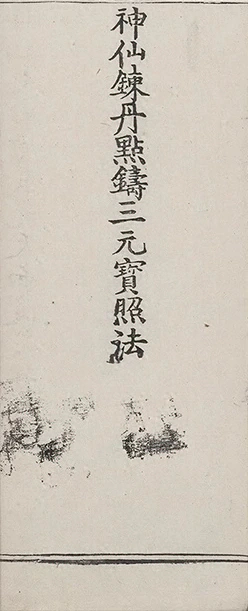 神仙鍊丹點鑄三元寶照法